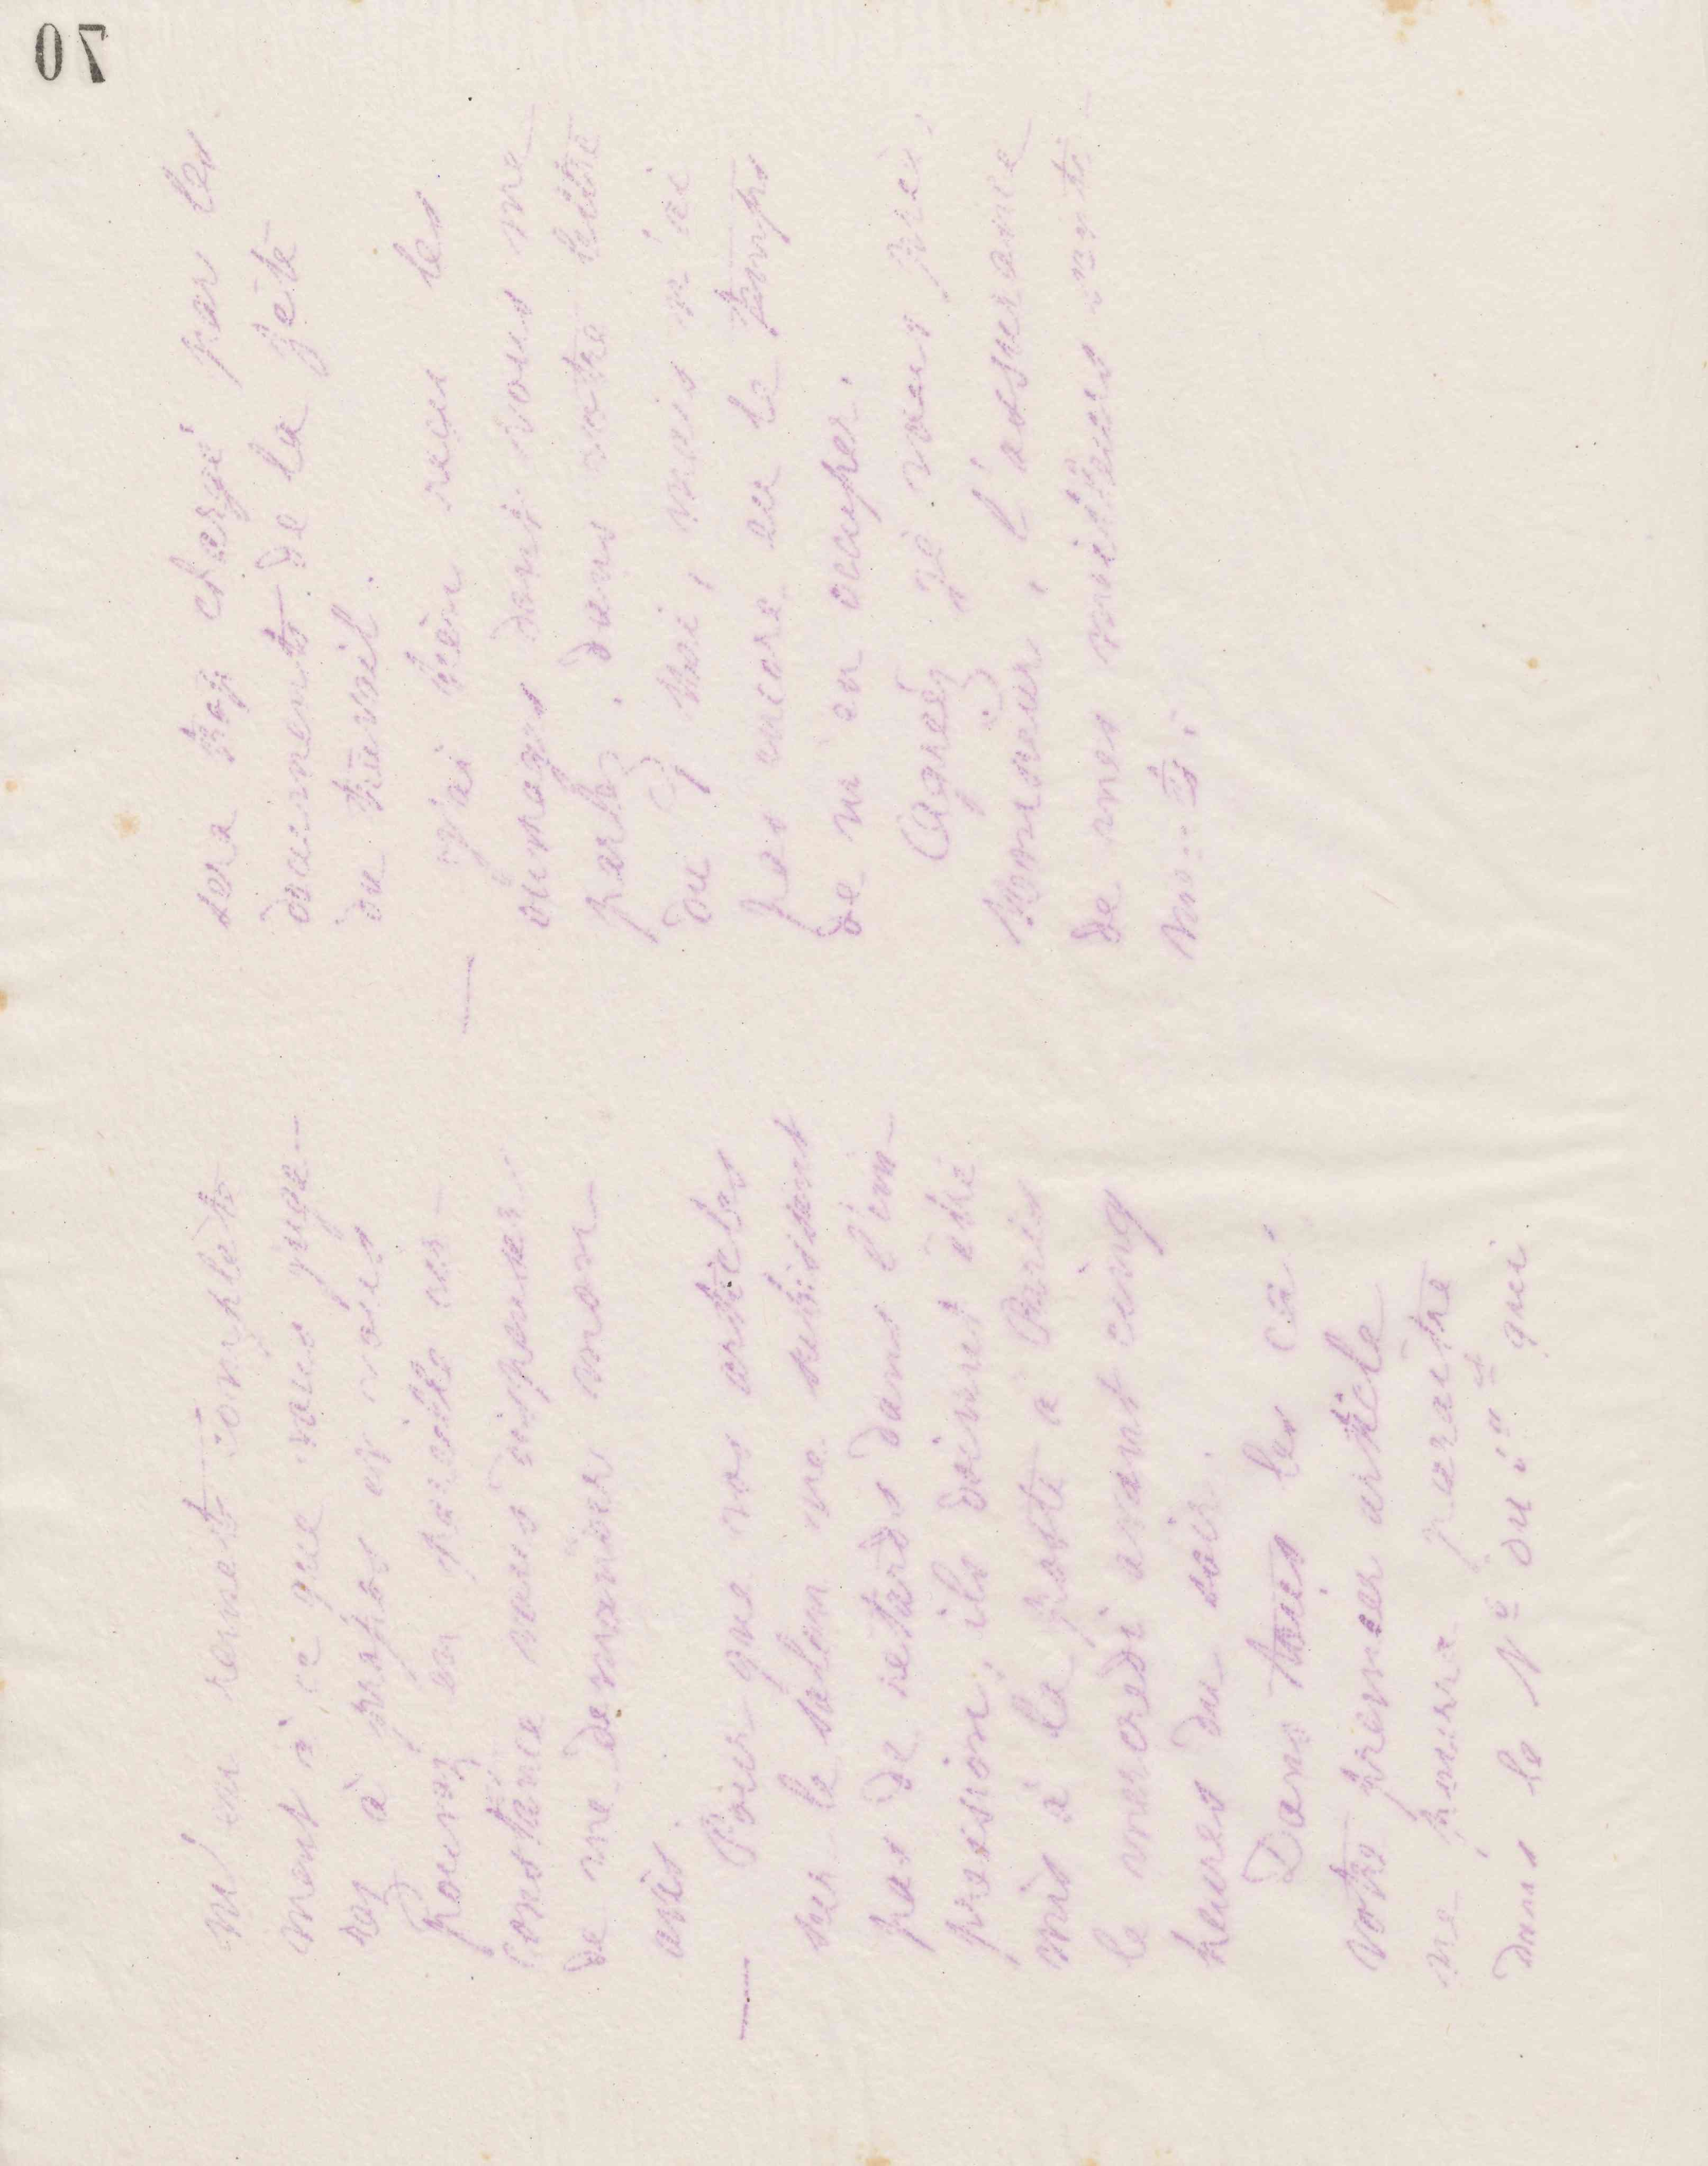 70
m'en remets complète-
ment à ce que vous juge-
rez à propos et vous
pouvez en pareille cir-
constance vous dispenser
de me demander mon
avis.
— Pour que vos articles
sur le salon ne subissent
pas de retards dans l'im-
pression, ils doivent être
mis à la poste à Paris
le mercredi avant cinq
heures du soir.
Dans tous les cas
votre premier article
ne pourra paraître
dans le N° du qui
sera trop chargé par les
documents de la fête
du travail.
— J'ai bien reçu les
ouvrages dont vous me
parlez dans votre lettre
du 9 Mai, mais n'ai
pas encore eu le temps
de m'en occuper.
Agréez, je vous prie,
Monsieur, l'assurance
de mes meilleurs